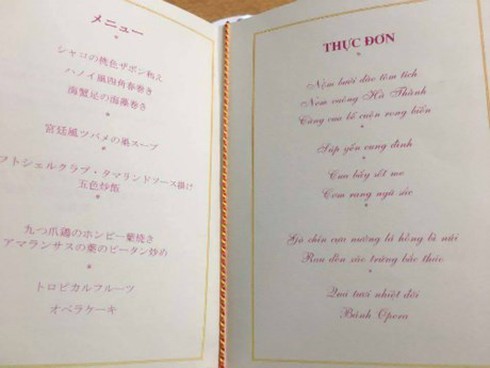 メニュー
シャコの桃色ザボン和え
ハノイ風四角春巻き
海蟹足の海藻巻き
宮廷風ツバメの巣スープ
フトシェルクラブ・タマランドソース揚げ
五色炒飯
九つ爪鶏のホンビー葉焼き
アマランサスの葉のピータン炒め
トロピカルフルーツ
オペラケーキ
THỰC ĐƠN
Nộm bưởi đào tôm tích
Nem vuông Hà Thành
Càng cua bể cuốn rong biển
Súp yến cung đình
Cua bấy sốt me
Cơm rang ngũ sắc
Gà chín cựa nướng lá hồng bì núi
Rau dền xào trứng bắc thảo
Quả tươi nhiệt đới
Bánh Opera